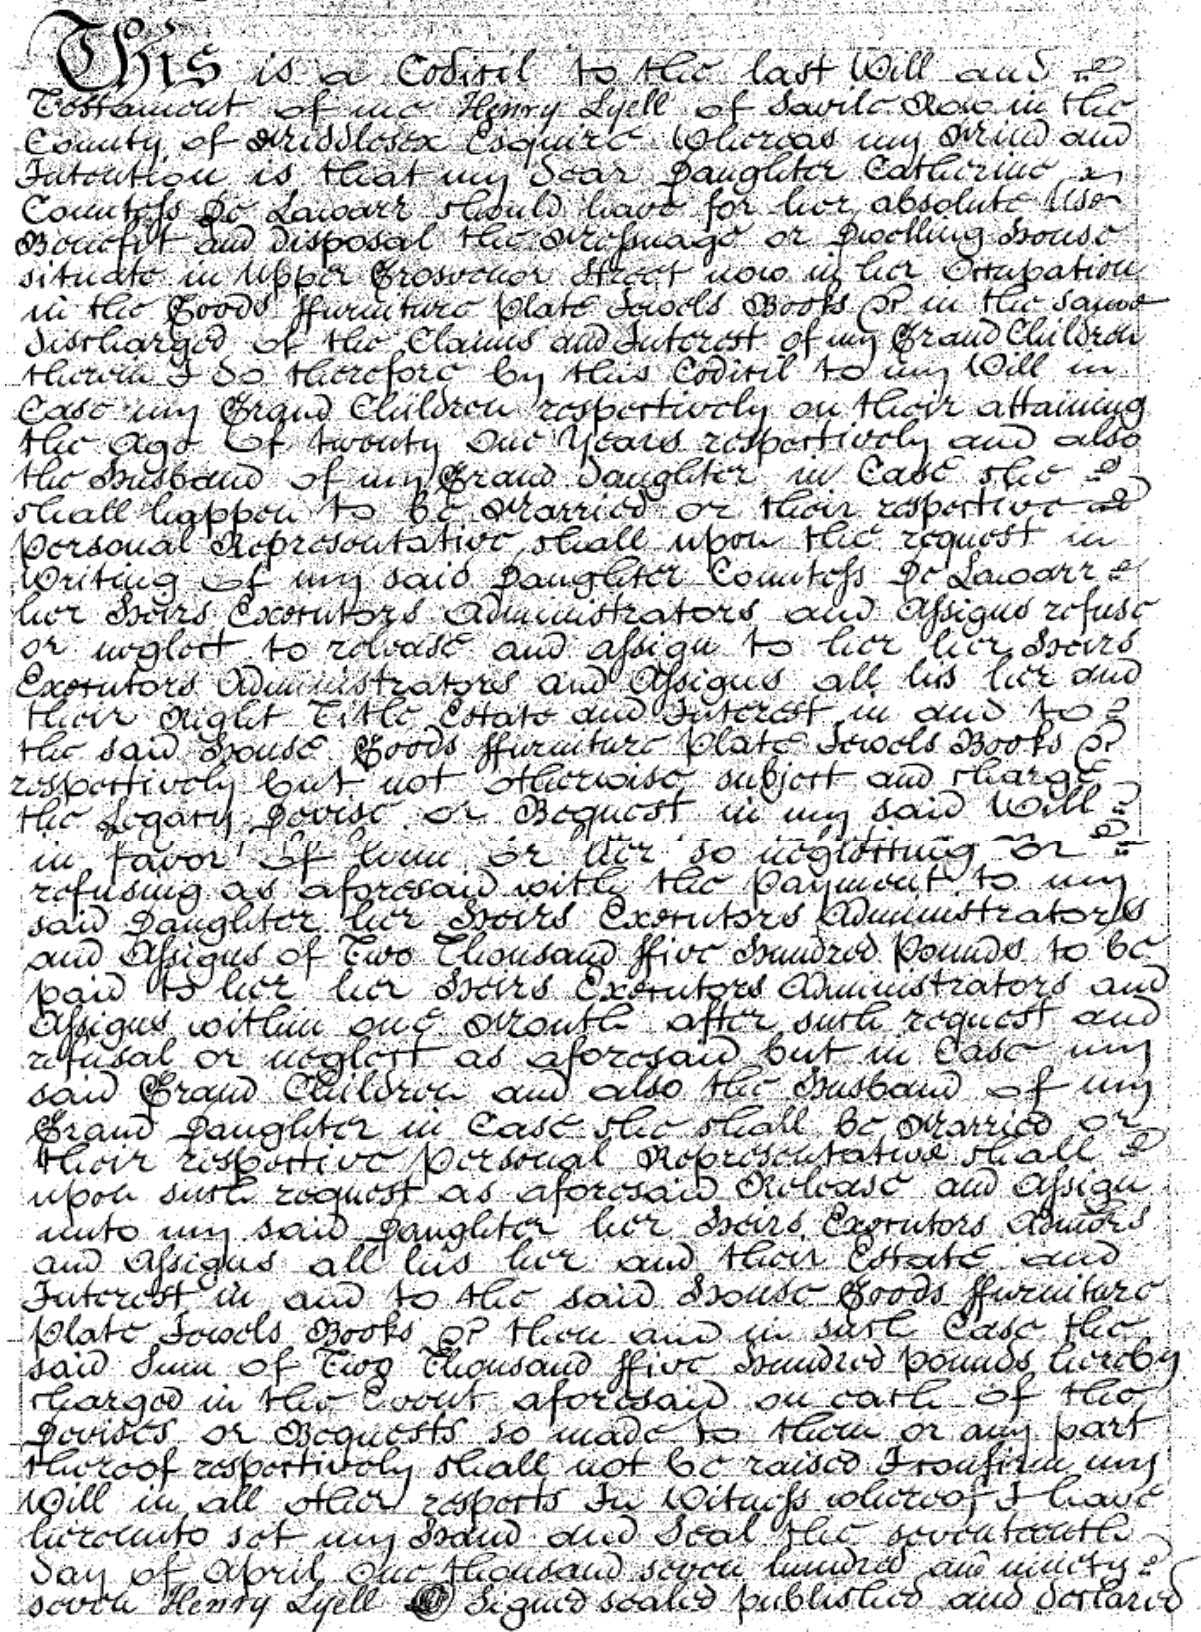 This is a Codicil to the last Will and
Testament of me Henry Lyell of Savile Row in the
County of Middlesex Esquire Whereas my Mind and
Intention is that my dear Daughter Catherine
Countess De Lawarr should have for her absolute Use
Benefit and disposal the Messuage or Dwelling House
situate in Upper Grosvenor Street now in her Occupation
in the Goods ffurniture Plate Jewels Books &c in the same
discharged of the Claims and Interest of my Grand Children
therein I do therefore by this Codicil to my Will in
Case my Grand Children respectively on their attaining
the Age of twenty One Years respectively and also
the Husband of my Grand Daughter in Case she
shall happen to be Married or their respective
personal Representative shall upon the request in
Writing of my said Daughter Countess De Lawarr
her Heirs Executors Administrators and Assigns refuse
or neglect to release and assign to her her Heirs
Executors Administrators and Assigns all his her and
their Right Title Estate and Interest in and to
the said House Goods ffurniture Plate Jewels Books &c
respectively but not otherwise subject and charge
the Legacy Devise or Bequest in my said Will
in favor of him or her so neglecting or
refusing as aforesaid with the Payment to my
said Daughter her Heirs Executors Administrators
and Assigns of Two Thousand ffive Hundred Pounds to be
paid to her her Heirs Executors Administrators and
Assigns within one Month after such request and
refusal or neglect as aforesaid but in Case my
said Grand Children and also the Husband of my
Grand Daughter in Case she shall be Married or
their respective personal Representative shall
upon such request as aforesaid Release and Assign
unto my said Daughter her Heirs Executors Admors
and Assigns all his her and their Estate and
Interest in and to the said House Goods ffurniture
Plate Jewels Books &c then and in such Case the
said Sum of Two Thousand ffive Hundred pounds hereby
charged in the Event aforesaid on each of the
Devises or Bequests so made to them or any part
thereof respectively shall not be raised I confirm my
Will in all other respects In Witness whereof I have
hereunto set my Hand and Seal the seventeenth
day of April One thousand seven hundred and ninety
seven Henry Lyell Signed sealed published and declared